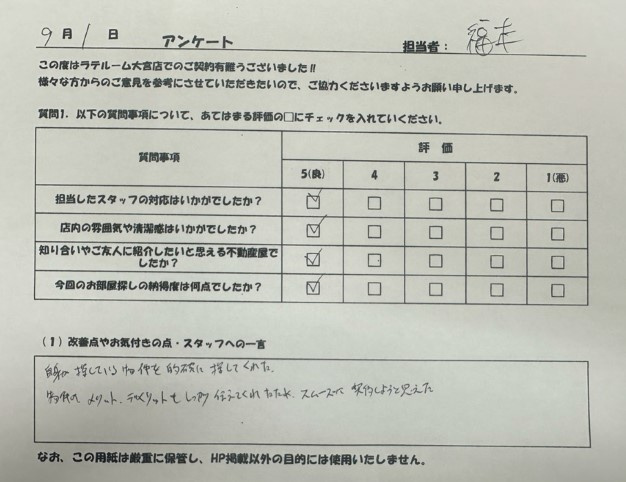 9月1日 アンケート 担当者：福本
この度はラテルーム大宮店でのご契約有難うございました!!
様々な方からのご意見を参考にさせていただきたいので、ご協力くださいますようお願い申し上げます。
質問1. 以下の質問事項について、あてはまる評価の□にチェックを入れていください。
質問事項 評 価
5(良) 4 3 2 1(悪)
担当したスタッフの対応はいかがでしたか？
店内の雰囲気や清潔感はいかがでしたか？
知り合いやご友人に紹介したいと思える不動産屋で
したか？
今回のお部屋探しの納得度は何点でしたか？
(1) 改善点やお気付きの点・スタッフへの一言
自身が探している物件を的確に探してくれた。
物件のメリット、デメリットもしっかり伝えてくれたため、スムーズに契約しようと思えた
なお、この用紙は厳重に保管し、HP掲載以外の目的には使用いたしません。